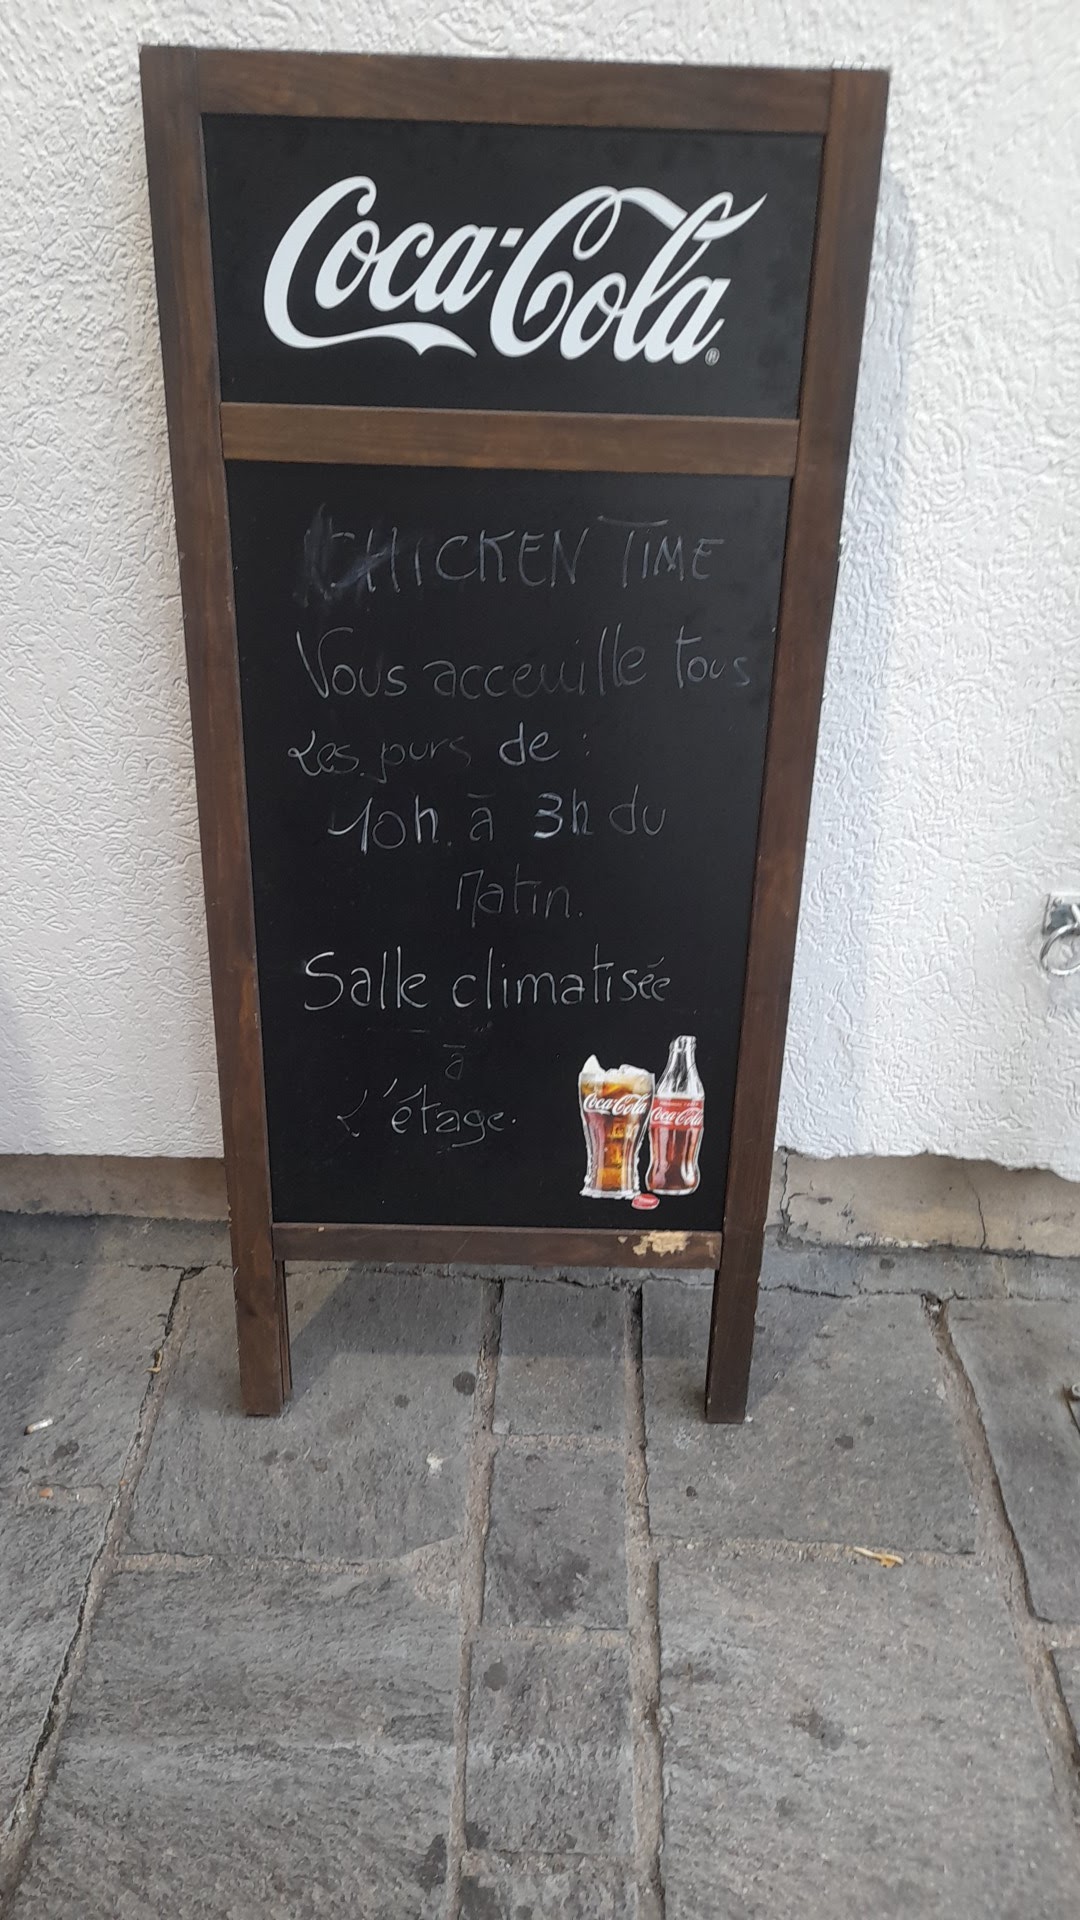 Coca-Cola
CHICKEN TIME
Vous acceuille tous
Les jours de :
10h à 3h du
Matin.
Salle climatisée
à
L'étage.
Coca-Cola
Coca-Cola